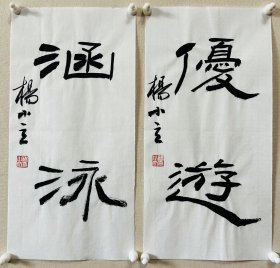 優遊
楊小立
涵泳
楊小立